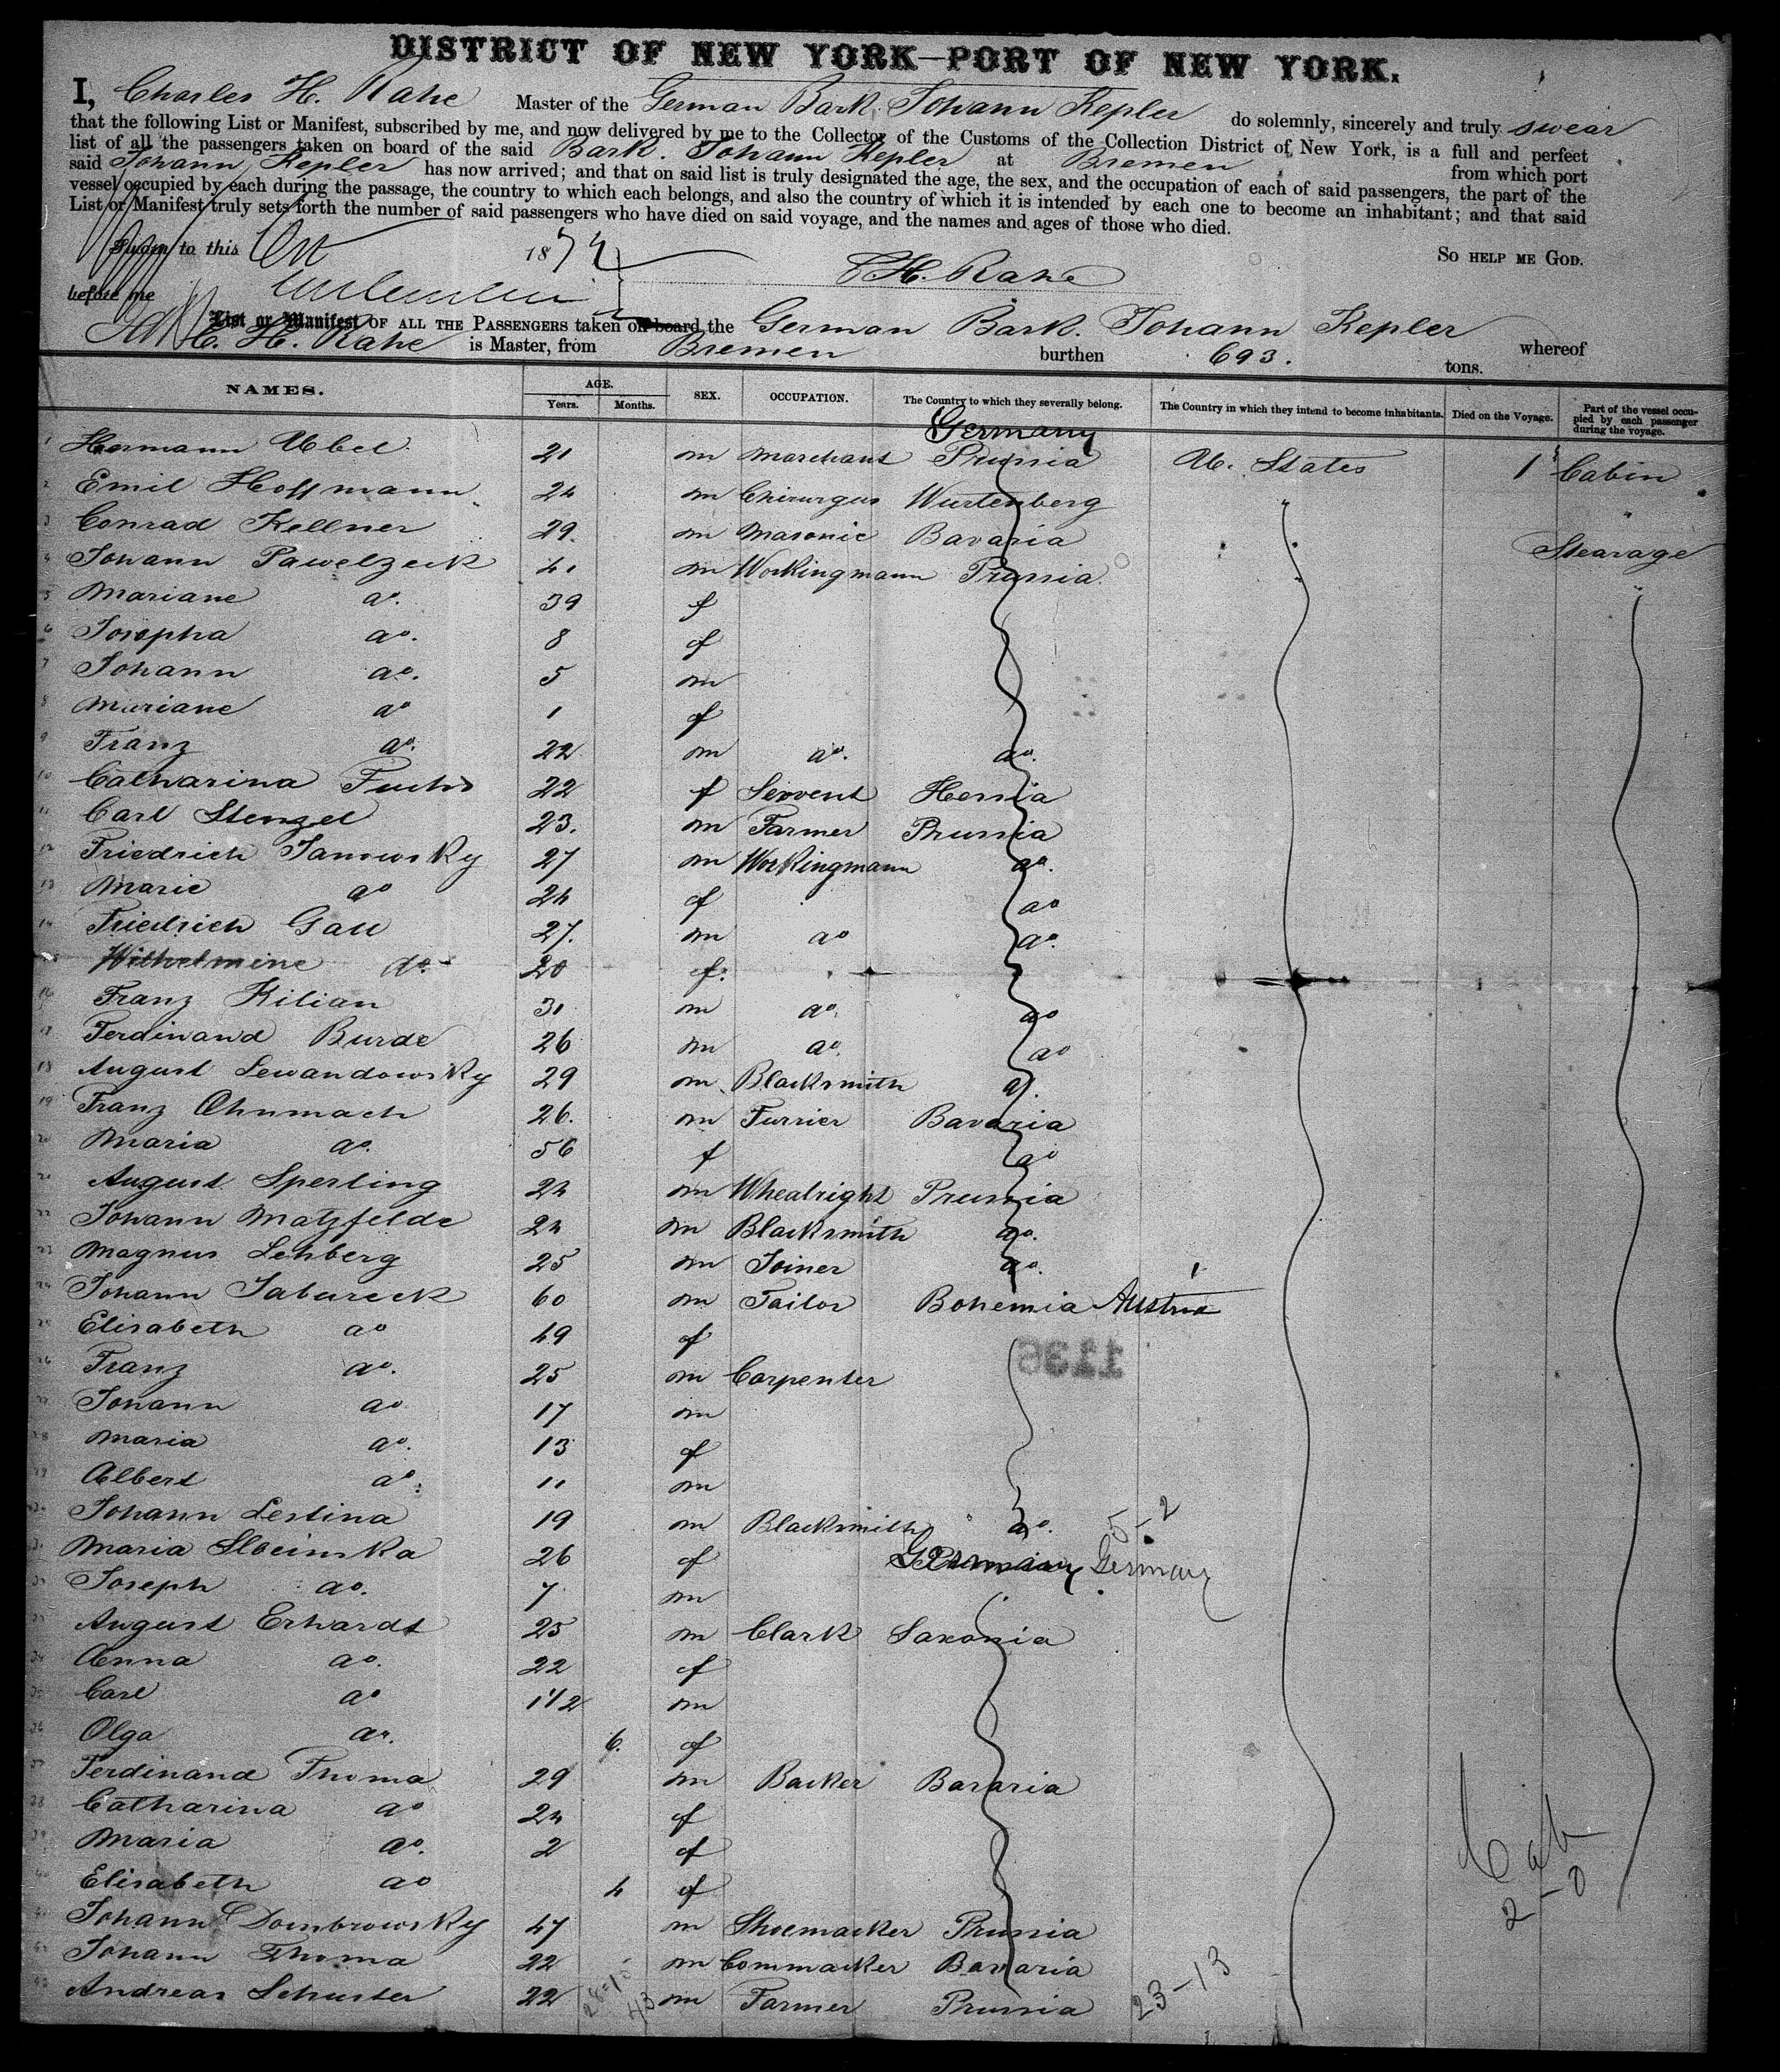 DISTRICT OF NEW YORK—PORT OF NEW YORK.
I, Charles H. Rahe Master of the German Bark Johann Kepler do solemnly, sincerely and truly swear
that the following List or Manifest, subscribed by me, and now delivered by me to the Collector of the Customs of the Collection District of New York, is a full and perfect
list of all the passengers taken on board of the said Bark. Johann Kepler at Bremen from which port
said Johann Kepler has now arrived; and that on said list is truly designated the age, the sex, and the occupation of each of said passengers, the part of the
vessel occupied by each during the passage, the country to which each belongs, and also the country of which it is intended by each one to become an inhabitant; and that said
List or Manifest truly sets forth the number of said passengers who have died on said voyage, and the names and ages of those who died.
So help me God.
Sworn to this 18
C H. Rahe
before me
List or Manifest of all the Passengers taken on board the German Bark. Johann Kepler whereof
C. H. Rahe is Master, from Bremen burthen 693. tons.
NAMES. AGE. Years. Months. SEX. OCCUPATION. The Country to which they severally belong. The Country in which they intend to become inhabitants. Died on the Voyage. Part of the vessel occupied by each passenger during the voyage.
Germany
1 Hermann Abel 21 m Merchant Prussia U. States 1 Cabin
2 Emil Hoffmann 24 m Chirurgus Wurtenberg " "
3 Conrad Kellner 29. m Masonic Bavaria Stearage
4 Johann Pawelzeck 41 m Workingmann Prussia "
5 Mariane do. 39 f
6 Josepha do. 8 f
7 Johann do. 5 m
8 Mariane do 1 f
9 Franz do. 22 m do. do
10 Catharina Fuchs 22 f Servent Hessia
11 Carl Stenzel 23. m Farmer Prussia
12 Friedrich Janowsky 27 m Workingmann do.
13 Marie do 24 f do
14 Friedrich Gall 27. m do do.
15 Wilhelmine do. 20 f.
16 Franz Kilian 31 m do. do
17 Ferdinand Burde 26 m do. do
18 August Lewandowsky 29 m Blacksmith do.
19 Franz Ohnmach 26. m Furrier Bavaria
20 Maria do. 56 f do
21 August Sperling 24 m Whealright Prussia
22 Johann Matzfelde 24 m Blacksmith do.
23 Magnus Lehberg 25 m Joiner do.
24 Johann Tabureck 60 m Tailor Bohemia Austria
25 Elisabeth do 49 f
26 Franz do. 25 m Carpenter
27 Johann do 17 m
28 Maria do. 13 f
29 Albert do. 11 m
30 Johann Lestina 19 m Blacksmith do. 5-2
31 Maria 26 f Germany Germany
32 Joseph do. 7 m
33 August Erhardt 25 m Clark Saxonia
34 Anna do. 22 f
35 Carl do 1 1/2 m
36 Olga do. 6. f
37 Ferdinand Thoma 29 m Backer Bavaria
38 Catharina do 24 f
39 Maria do. 2 f
40 Elisabeth do 4 f
41 Johann Dombrowsky 47 m Shoemacker Prussia
42 Johann Thoma 22 m Commacker Bavaria
43 Andreas Schuster 22 m Farmer Prussia
1136
Cab
2-0
23-13
28-15
43